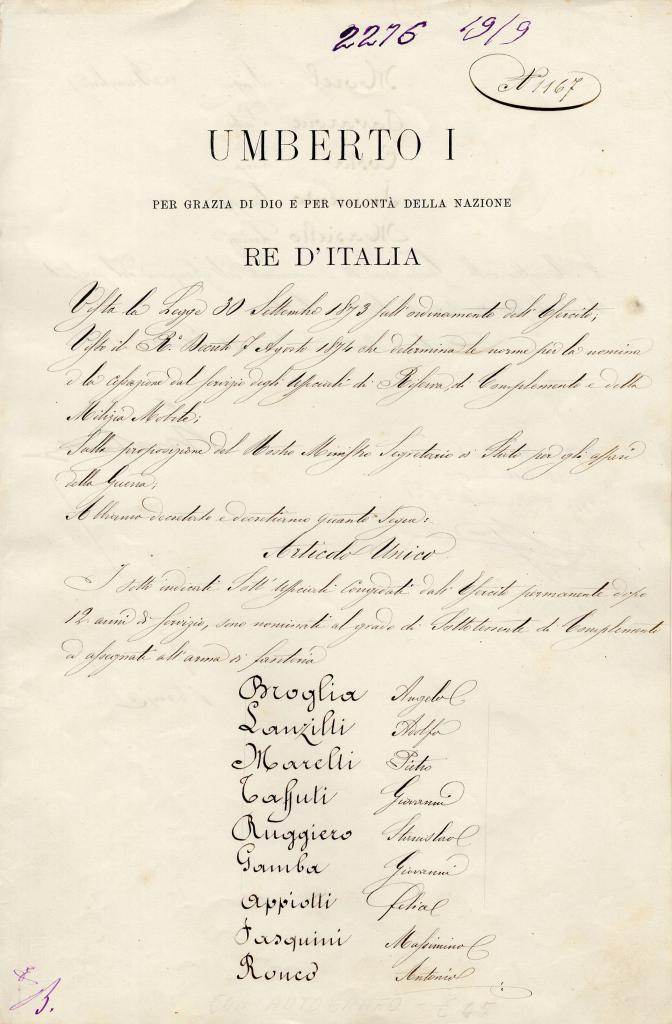 2276 19/9
N 1167
UMBERTO I
PER GRAZIA DI DIO E PER VOLONTÀ DELLA NAZIONE
RE D'ITALIA
Vista la Legge 30 Settembre 1873 sull'ordinamento dell'Esercito;
Visto il R.° Decreto 7 Agosto 1874 che determina le norme per la nomina
e la cessazione dal servizio degli Ufficiali di Riserva, di Complemento e della
Milizia Mobile;
Sulla proposizione del Nostro Ministro Segretario di Stato per gli affari
della Guerra;
Abbiamo decretato e decretiamo quanto segue:
Articolo Unico
I sotto indicati Sott'Ufficiali congedati dall'Esercito permanente dopo
12 anni di servizio, sono nominati al grado di Sottotenente di Complemento
ed assegnati all'arma di fanteria
Broglia Angelo
Lanzilli Adolfo
Marelli Pietro
Tassuti Giovanni
Ruggiero Stanislao
Gamba Giovanni
Appiotti Felice
Pasquini Massimino
Ronco Antonio
B.